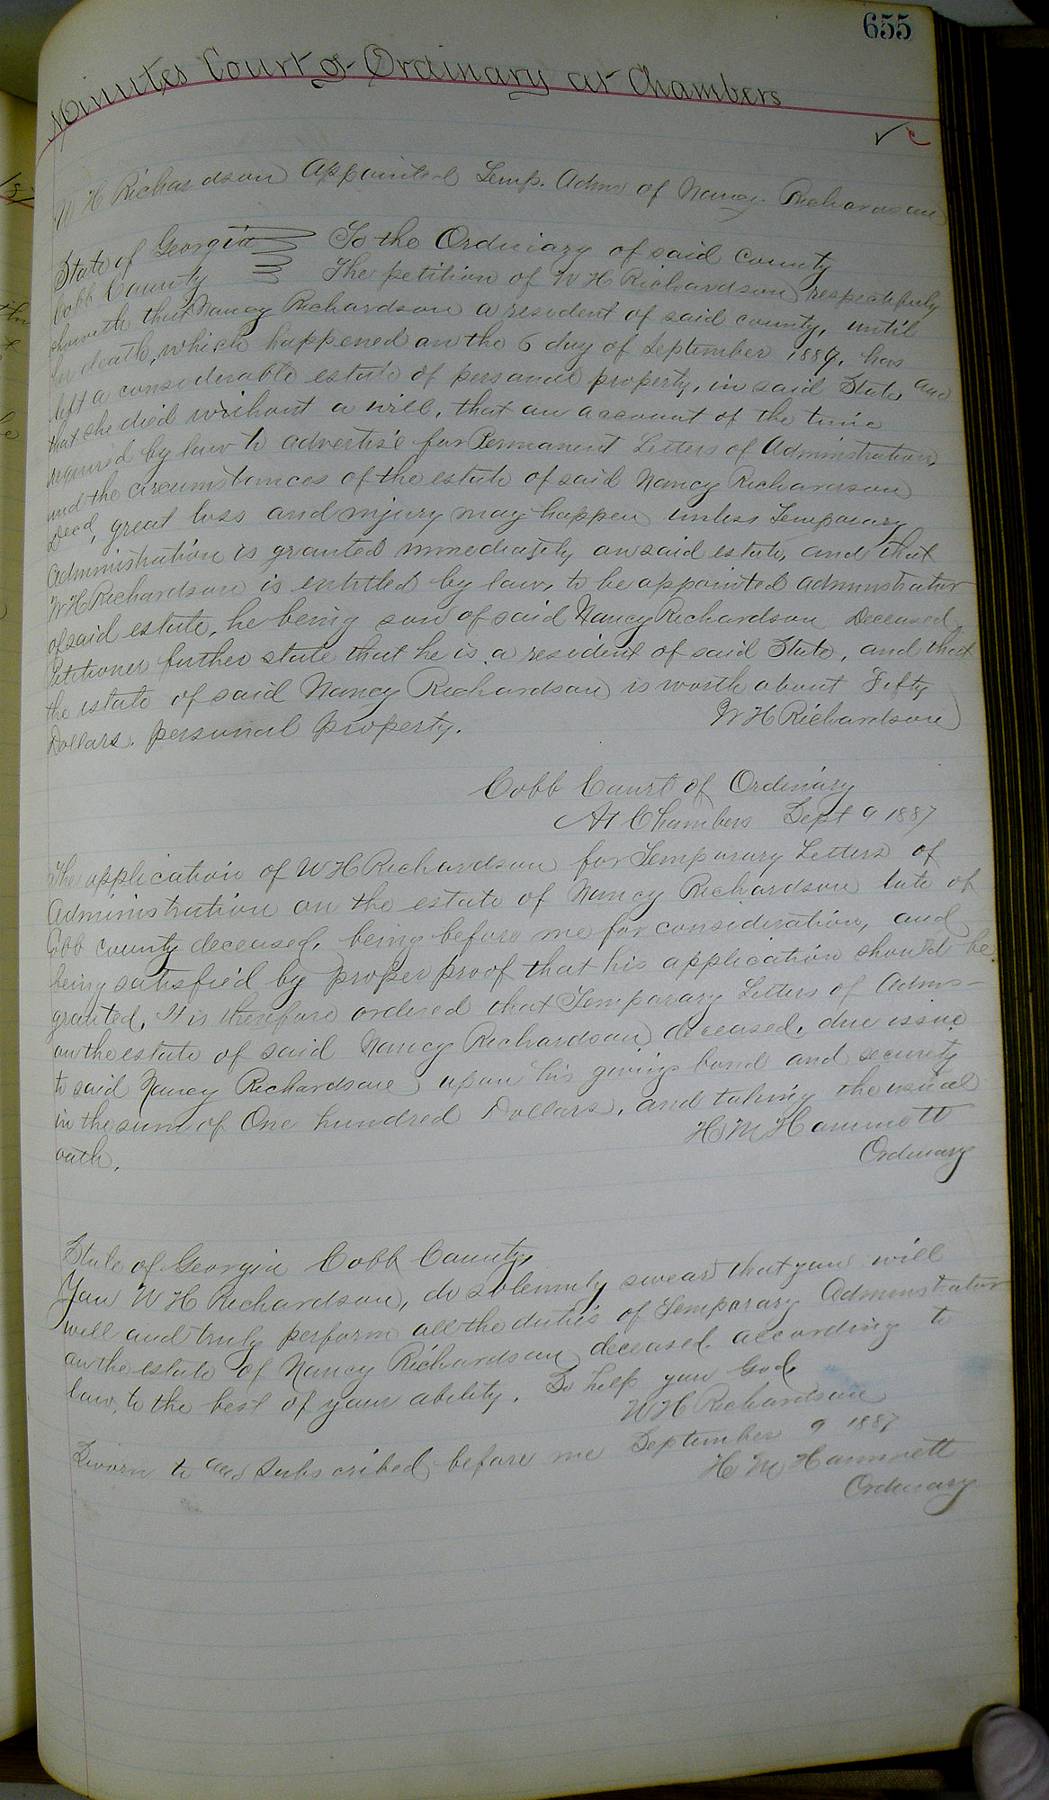 655
Minutes Court of Ordinary at Chambers
W H Richardson Appointed Temp. Admr of Nancy Richardson
State of Georgia To the Ordinary of said County
Cobb County The petition of W H Richardson respectfully
showeth that Nancy Richardson a resident of said county, until
her death, which happened on the 6 day of September 1887, has
left a considerable estate of personal property, in said State and
that she died without a will, that on account of the time
required by law to advertise for Permanent Letters of Administration,
and the circumstances of the estate of said Nancy Richardson
Decd, great loss and injury may happen unless Temporary
Administration is granted immediately on said estate, and that
W H Richardson is entitled by law, to be appointed administrator
of said estate, he being son of said Nancy Richardson Deceased.
Petitioner further state that he is a resident of said State, and that
the estate of said Nancy Richardson is worth about Fifty
Dollars. personal property. W H Richardson
Cobb Court of Ordinary
At Chambers Sept 9 1887
The application of W H Richardson for Temporary Letters of
Administration on the estate of Nancy Richardson late of
Cobb county deceased, being before me for consideration, and
being satisfied by proper proof that his application should be
granted, It is therefore ordered that Temporary Letters of Adms-
on the estate of said Nancy Richardson deceased, due issue
to said Nancy Richardson upon his giving bond and security
in the sum of One hundred Dollars, and taking the usual
oath. H M Hammett
Ordinary
State of Georgia Cobb County,
You W H Richardson, do solemnly swear that you will
well and truly perform all the duties of Temporary Administrator
on the estate of Nancy Richardson deceased according to
law, to the best of your ability. So help you God
W H Richardson
Sworn to and subscribed before me September 9 1887
H M Hammett
Ordinary